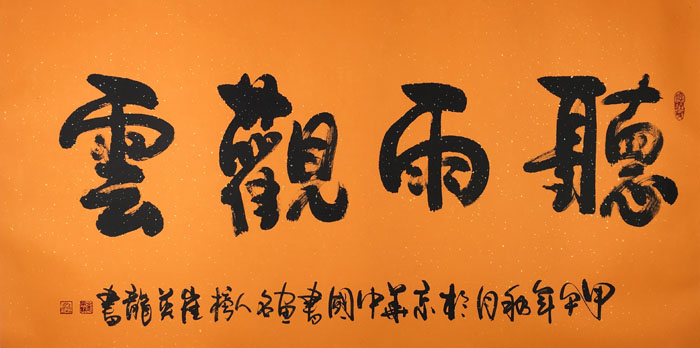 聽雨觀雲
甲午年秋月於京華中國書畫名人樓崔英龍書